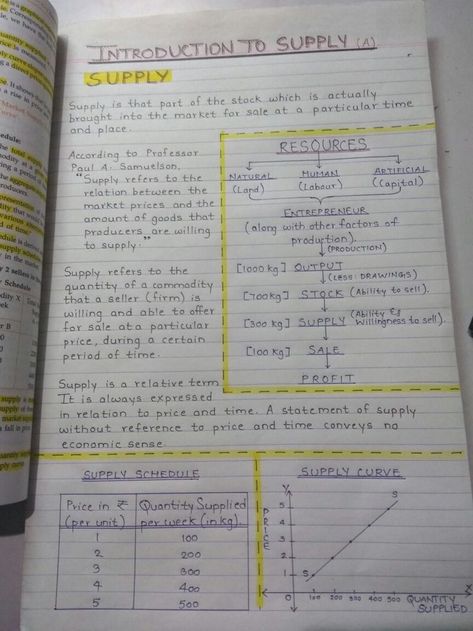 INTRODUCTION TO SUPPLY (A)
SUPPLY
Supply is that part of the stock which is actually
brought into the market for sale at a particular time
and place.
According to Professor
Paul A. Samuelson,
"Supply refers to the
relation between the
market prices and the
amount of goods that
producers are willing
to supply."
Supply refers to the
quantity of a commodity
that a seller (firm) is
willing and able to offer
for sale at a particular
price, during a certain
period of time.
Supply is a relative term
It is always expressed
in relation to price and time. A statement of supply
without reference to price and time conveys no
economic sense.
RESOURCES
NATURAL HUMAN ARTIFICIAL
(Land) (Labour) (Capital)
ENTREPRENEUR
(along with other factors of
production).
(PRODUCTION)
[1000 kg] OUTPUT
(LESS: DRAWINGS)
[700kg] STOCK (Ability to sell).
[300 kg] SUPPLY (Ability &
Willingness to sell).
[100 kg] SALE
PROFIT
SUPPLY SCHEDULE
Price in ₹ Quantity Supplied
(per unit) per week (in kg).
1 100
2 200
3 300
4 400
5 500
SUPPLY CURVE
Y
S
5
4
3
2
1 S
PRICE
0 100 200 300 400 500 X
QUANTITY
SUPPLIED